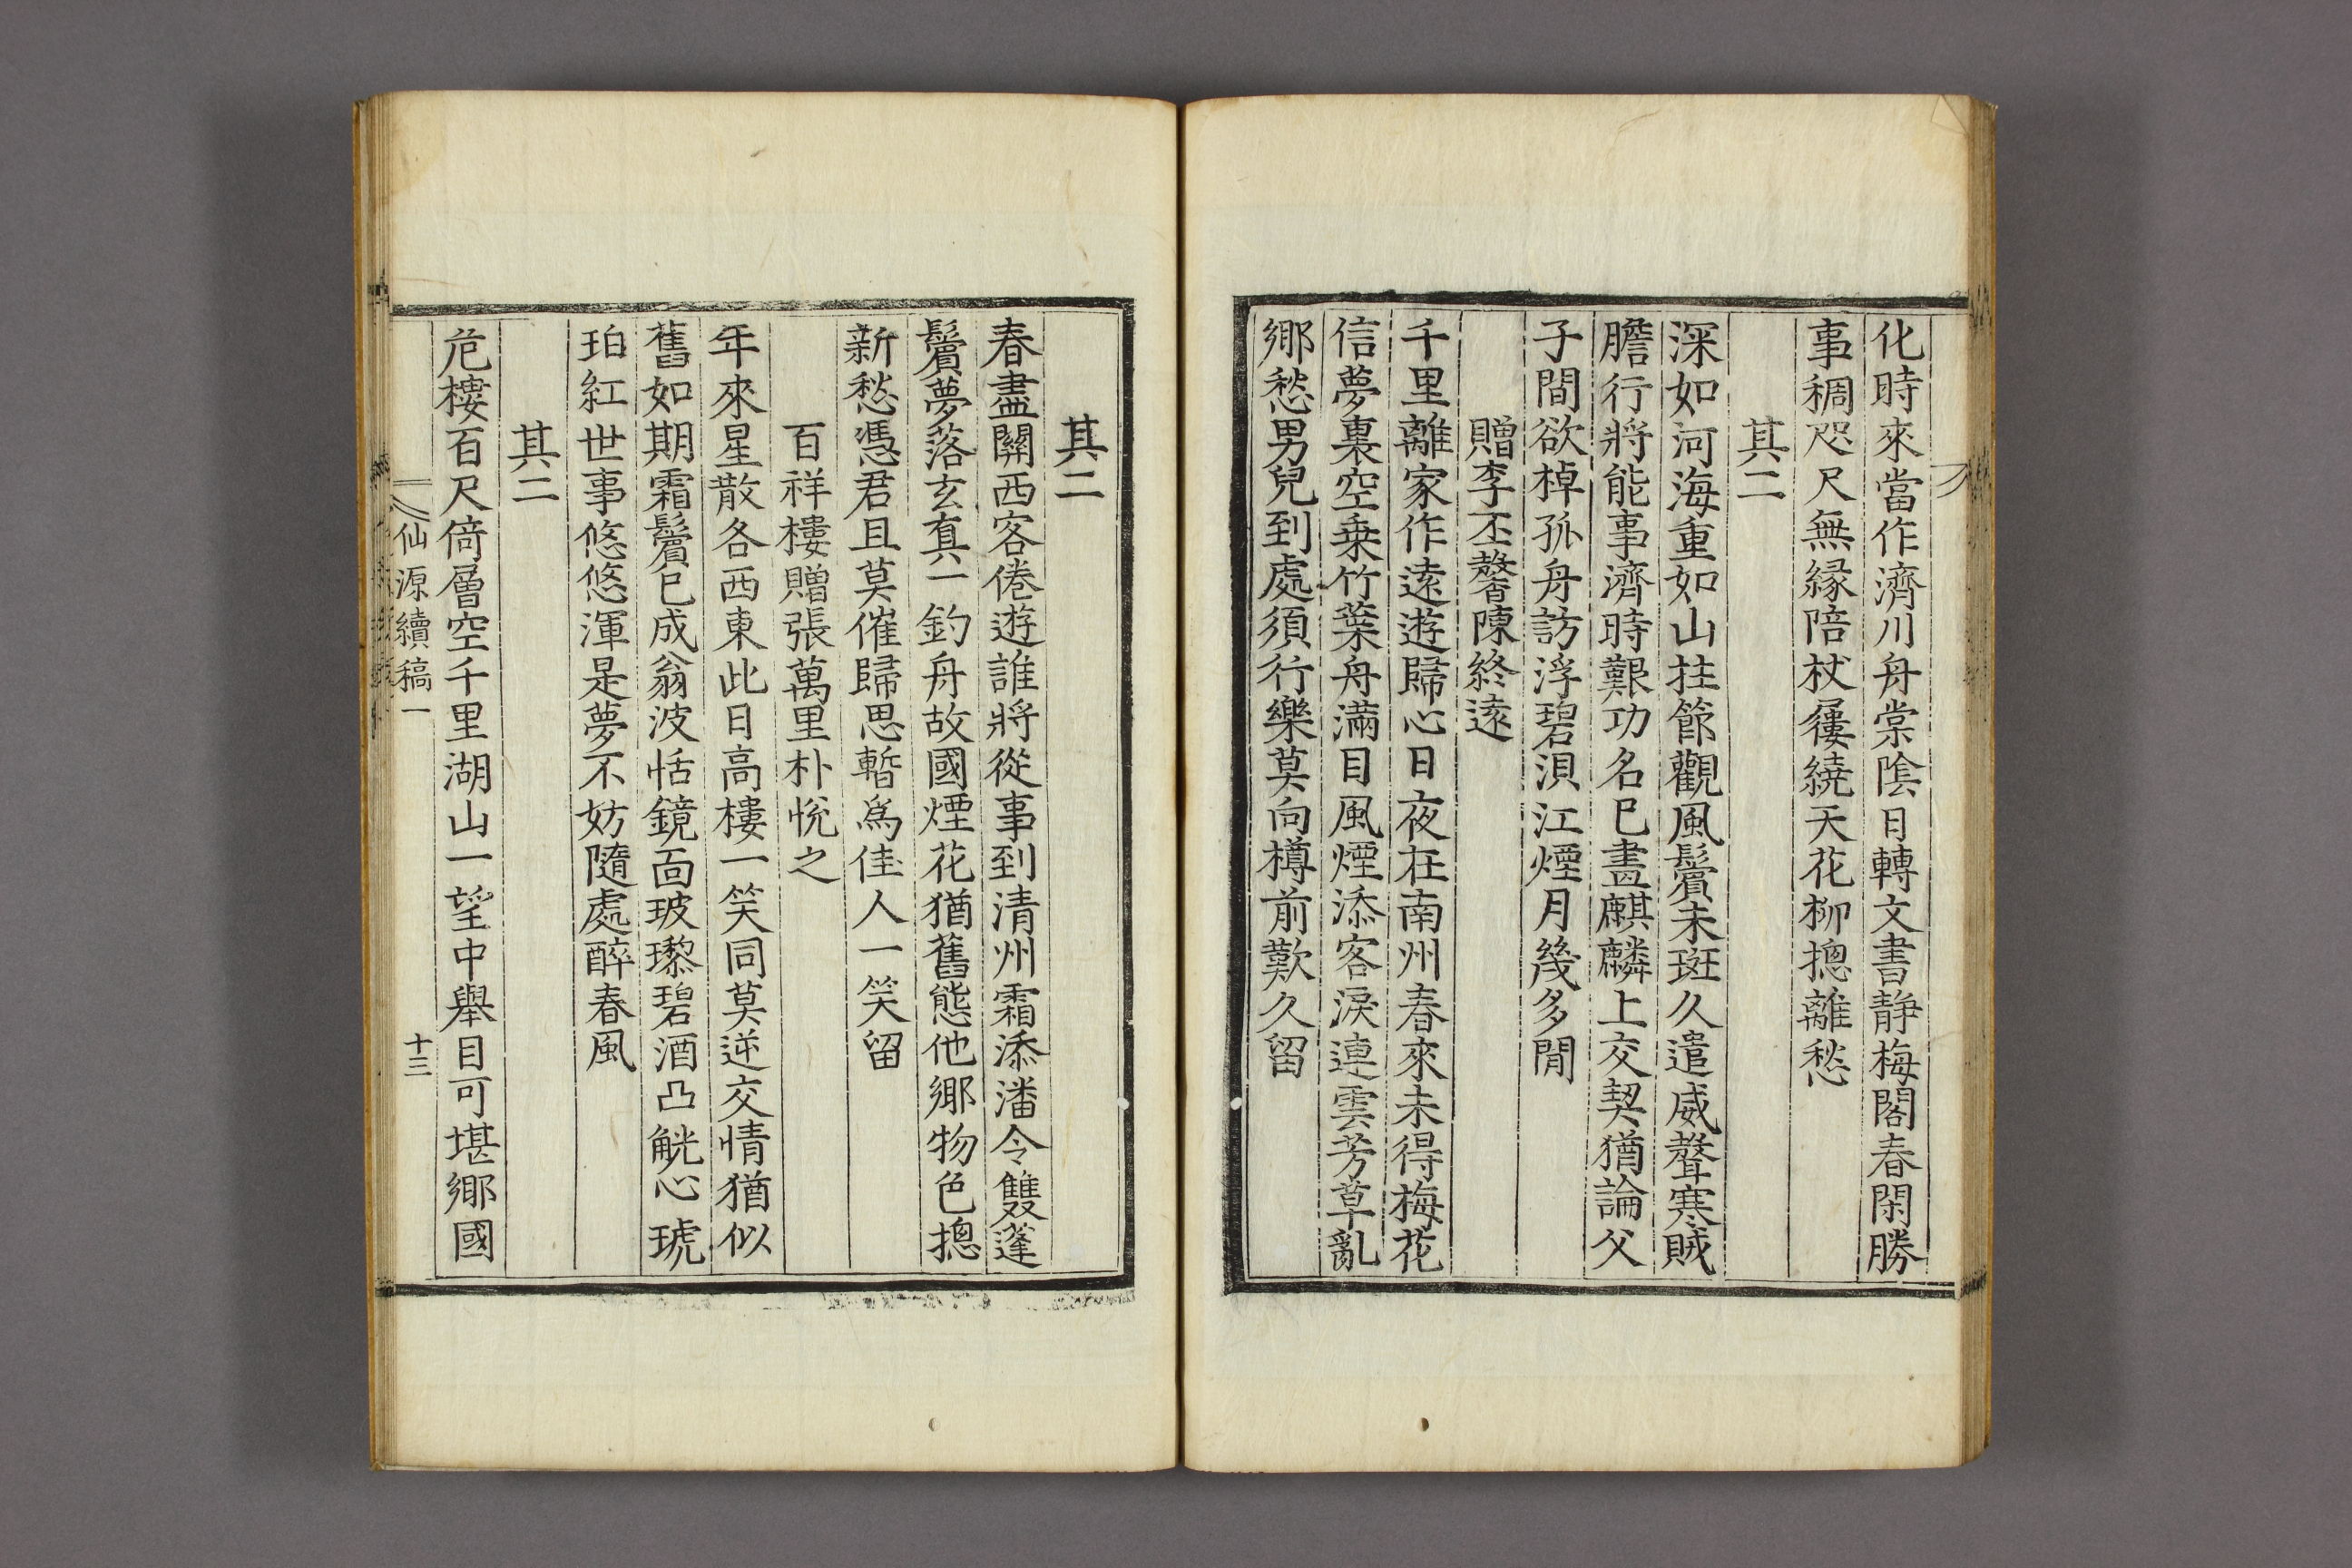 化時來當作濟川舟棠陰日轉文書静梅閣春閑勝
事稠咫尺無縁陪杖屨繞天花柳摠離愁
其二
深如河海重如山拄節觀風鬢未斑久遣威聲寒賊
膽行將能事濟時艱功名已畫麒麟上交契猶論父
子間欲棹孤舟訪浮碧浿江煙月幾多閒
贈李丕馨陳終遠
千里離家作遠遊歸心日夜在南州春來未得梅花
信夢裏空乗竹葉舟滿目風煙添客淚連雲芳草亂
鄉愁男兒到處須行樂莫向樽前歎久留
其二
春盡關西客倦遊誰將從事到清州霜添潘令雙蓬
鬢夢落玄真一釣舟故國煙花猶舊態他鄉物色摠
新愁憑君且莫催歸思暫爲佳人一笑留
百祥樓贈張萬里朴悅之
年來星散各西東此日高樓一笑同莫逆交情猶似
舊如期霜鬢已成翁波恬鏡面玻瓈碧酒凸觥心琥
珀紅世事悠悠渾是夢不妨隨處醉春風
其二
危樓百尺倚層空千里湖山一望中舉目可堪鄉國
仙源續稿一
十三